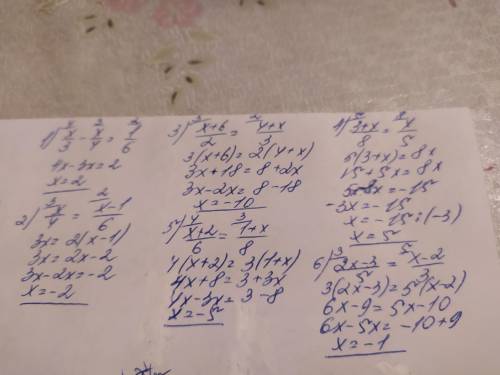 1) x/3 - x/4 = 1/6
4x-3x=2
x=2
2) x/4 = x-1/6
3x=2(x-1)
3x=2x-2
3x-2x=-2
x=-2
3) x+6/2 = 4+x/3
3(x+6)=2(4+x)
3x+18=8+2x
3x-2x=8-18
x=-10
5) x+2/6 = 1+x/8
4(x+2)=3(1+x)
4x+8=3+3x
4x-3x=3-8
x=-5
4) 3+x/8 = x/5
5(3+x)=8x
15+5x=8x
-3x=-15
x=-15:(-3)
x=5
6) 2x-3/5 = x-2/3
3(2x-3)=5(x-2)
6x-9=5x-10
6x-5x=-10+9
x=-1